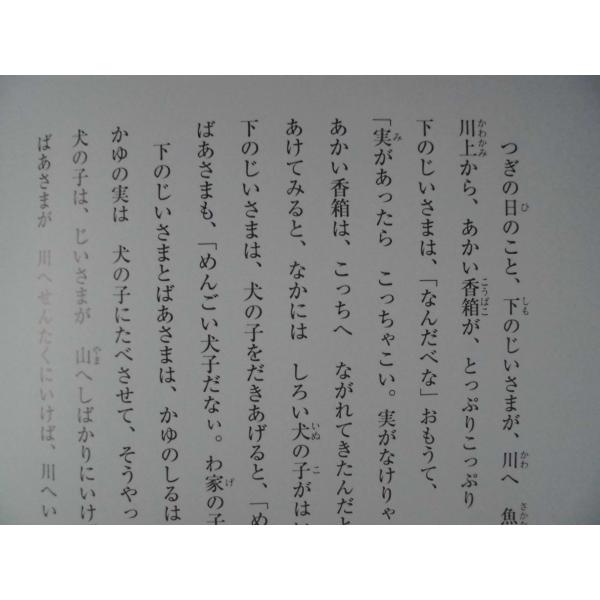 つぎの日のこと、下のじいさまが、川へ　魚
川上から、あかい香箱が、とっぷりこっぷり
下のじいさまは、「なんだべな」おもうて、
「実があったら　こっちゃこい。実がなけりゃ
あかい香箱は、こっちへ　ながれてきたんだと
あけてみると、なかには　しろい犬の子がはい
下のじいさまは、犬の子をだきあげると、「め
ばあさまも、「めんごい犬子だなぃ。わ家の子
下のじいさまとばあさまは、かゆのしるは
かゆの実は　犬の子にたべさせて、そうやっ
犬の子は、じいさまが　山へしばかりにいけ
ばあさまが　川へせんたくにいけば、川へい